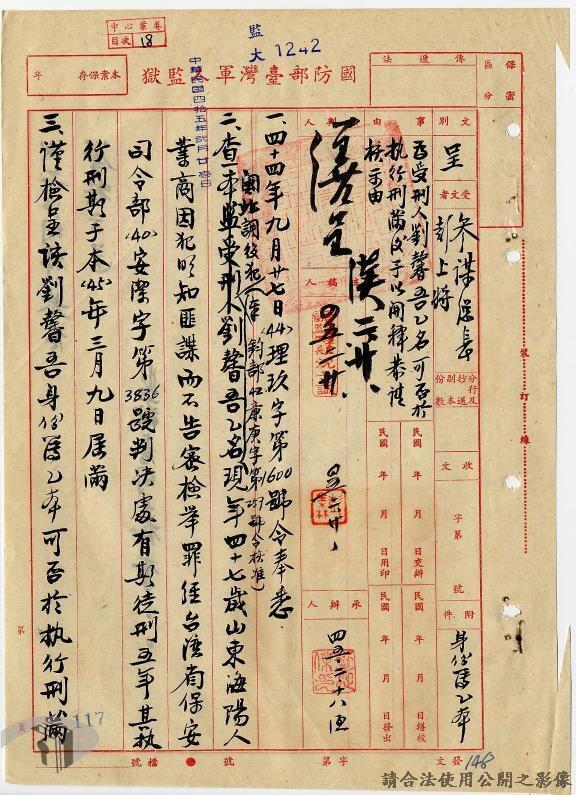 中心業卷
目次 18
監
大 1242
國防部臺灣軍人監獄
本案保存 年
中華民國四拾五年貳月廿壹日
保密區分
傳遞法
文別
呈
受文者
參謀總長
彭上將
事由
為受刑人劉馨吾乙名可否於
執行刑滿後予以開釋恭請
核示由
判人
擬稿人
承辦人
四五、二、十八
分行及抄送副本份數
收文 字第 號
附件
身份簿乙本
民國 年 月 日交辦
民國 年 月 日用印
民國 年 月 日繕校
民國 年 月 日發出
裝訂線
一、四十四年九月廿七日(44)理玖字第1600號令奉悉。
二、查本監受刑人劉馨吾乙名現年四十七歲山東海陽人
業商因犯明知匪諜而不告密檢舉罪經台灣省保安
司令部(40)安潔字第3836號判決處有期徒刑五年其執
行刑期于本(45)年三月九日屆滿
三、謹檢呈該劉馨吾身份簿乙本可否於執行刑滿
第 頁
117
檔號
字第 號
發文
148
請合法使用公開之影像